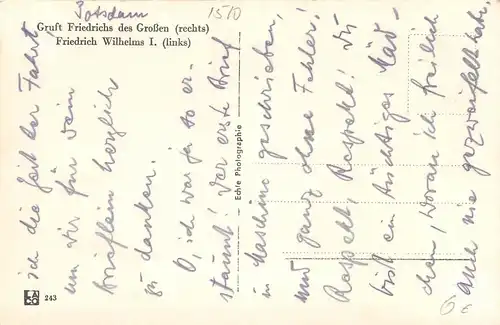 Potsdam
1510
Gruft Friedrichs des Großen (rechts)
Friedrich Wilhelms I. (links)
Echte Photographie
243
ich die Zeit der Fahrt,
um Dir für Dein
Brieflein herzlich
zu danken.
O, ich war ja so er-
staunt! Der erste Brief
in Maschine geschrieben,
und ganz ohne Fehler!
Respekt, Respekt! Du
bist ein tüchtiges Mäd-
chen, woran ich freilich
auch nie gezweifelt habe.
6 €